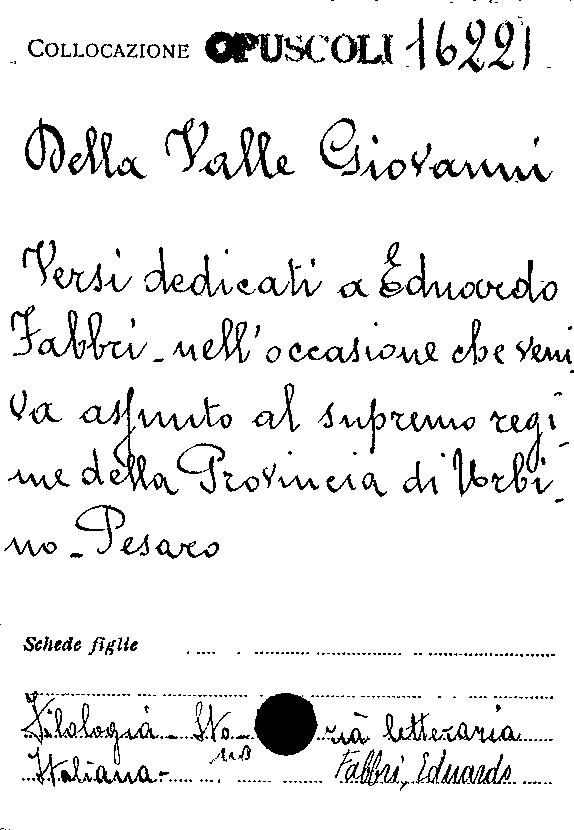 COLLOCAZIONE OPUSCOLI 16221
Della Valle Giovanni
Versi dedicati a Eduardo
Fabbri - nell'occasione che veni
va assunto al supremo regi-
me della Provincia di Urbi-
no - Pesaro
Schede figlie
Filologia - Sto- ria letteraria
Italiana - Fabbri, Eduardo